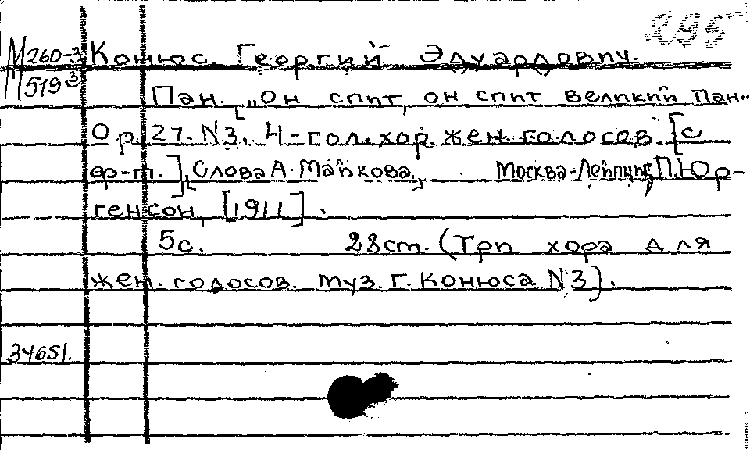 295
М 260-3 Конюс, Георгий Эдуардович.
М 519 3 Пан. „Он спит, он спит великий Пан..
Ор. 27. N3. 4-гол. хор. жен. голосов. [с
фр-п.], Слова А. Майкова, Москва-Лейпциг, П. Юр-
генсон, [1911].
5с. 28cm. (Три хора для
жен. голосов. муз. Г. Конюса N3).
34651.